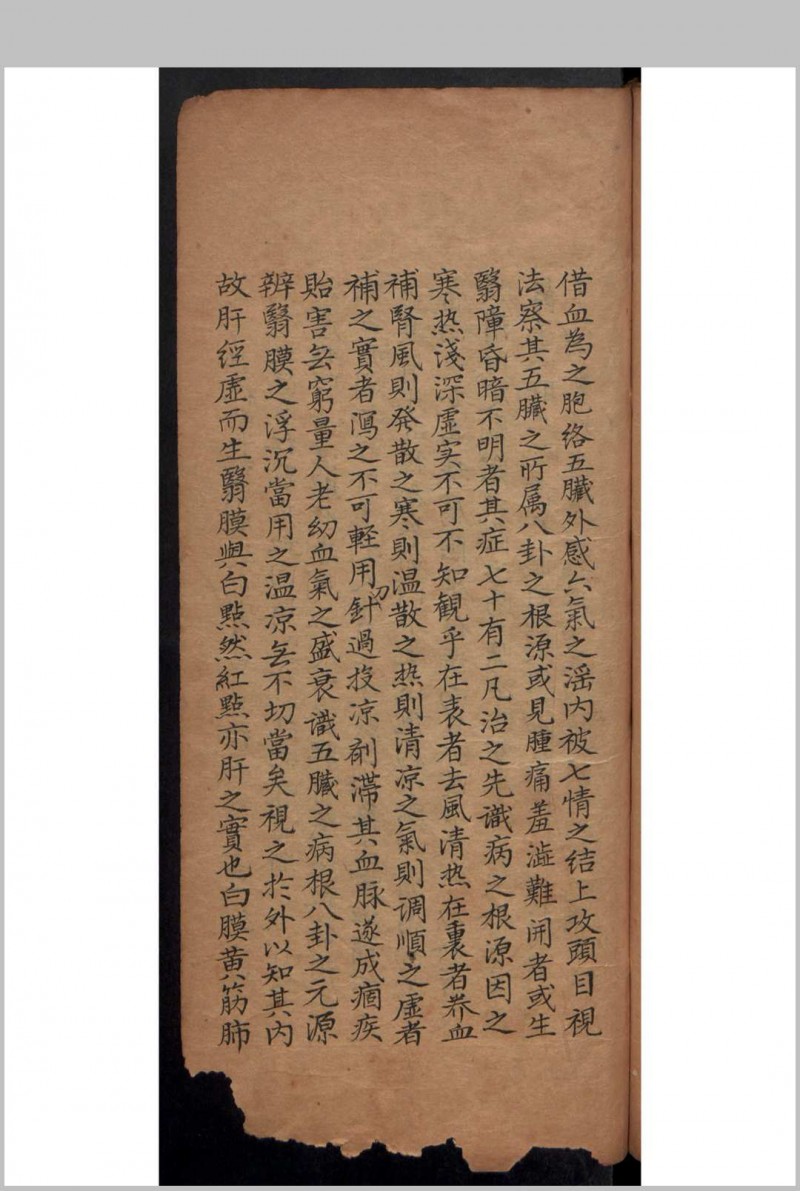 借血為之胞络五臟外感六氣之滛内被七情之结上攻頭目視
法察其五臟之所属八卦之根源或見腫痛羞澁難開者或生
翳障昏暗不明者其症七十有二凡治之先識病之根源因之
寒热淺深虚实不可不知観乎在表者去風清热在裏者养血
補腎風則発散之寒則温散之热則清凉之氣則调順之虚者
補之實者瀉之不可軽用針刀過投凉剤滞其血脉遂成痼疾
貽害无窮量人老幼血氣之盛衰识五臟之病根八卦之元源
辨翳膜之浮沉當用之温凉无不切當矣視之扵外以知其内
故肝經虚而生翳膜與白點然紅點亦肝之實也白膜黄筋肺